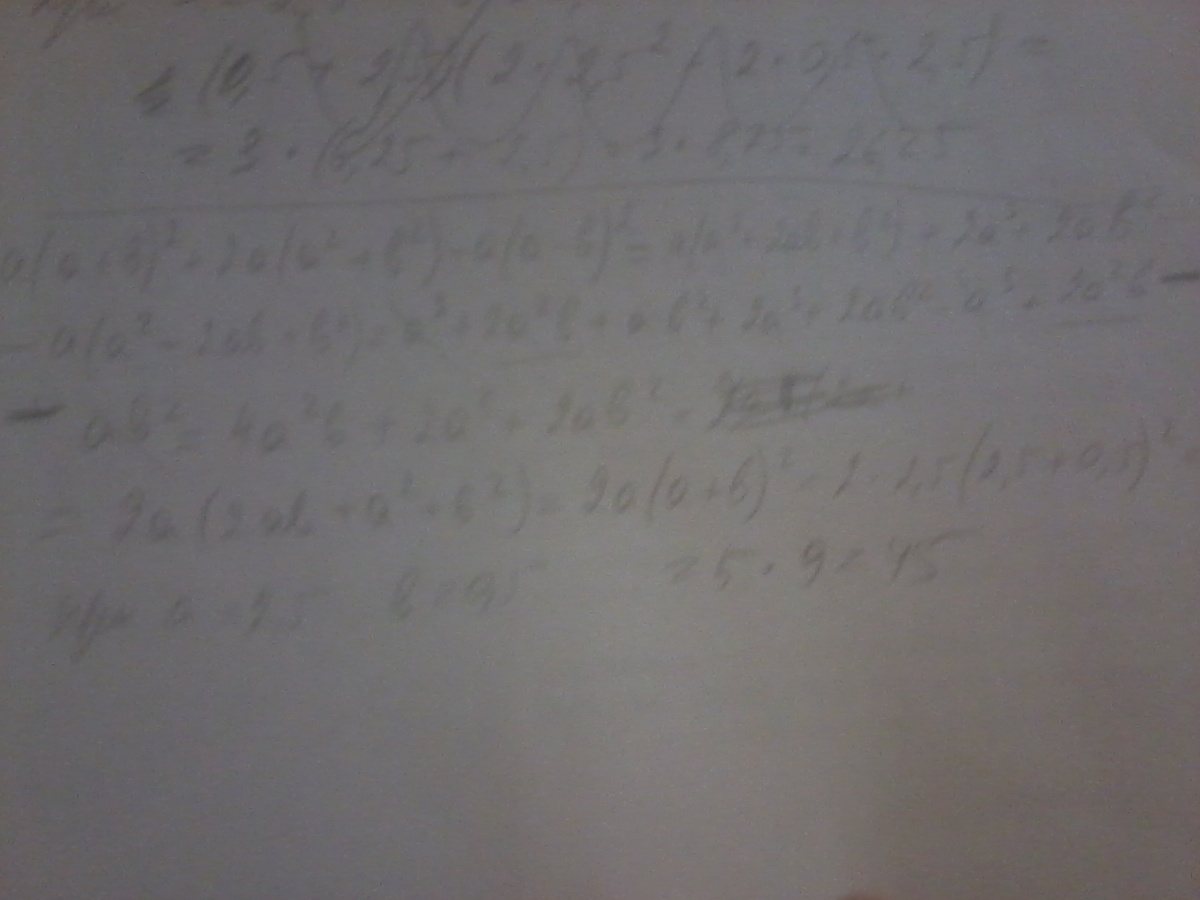 (0,5 + 2) (2 · 2,5² + 2 · 0,5 · 2,5) =
= 3 · (6,25 + 2,5) = 3 · 8,75 = 26,25
a(a+b)² + 2a(a²+b²) - a(a-b)² = a(a²+2ab+b²) + 2a³ + 2ab² -
- a(a² - 2ab + b²) = a³ + 2a²b + ab² + 2a³ + 2ab² - a³ + 2a²b -
- ab² = 4a²b + 2a³ + 2ab² =
= 2a(2ab + a² + b²) = 2a(a+b)² = 2 · 2,5(2,5+0,5)² =
При a = 2,5 b = 0,5 = 5 · 9 = 45